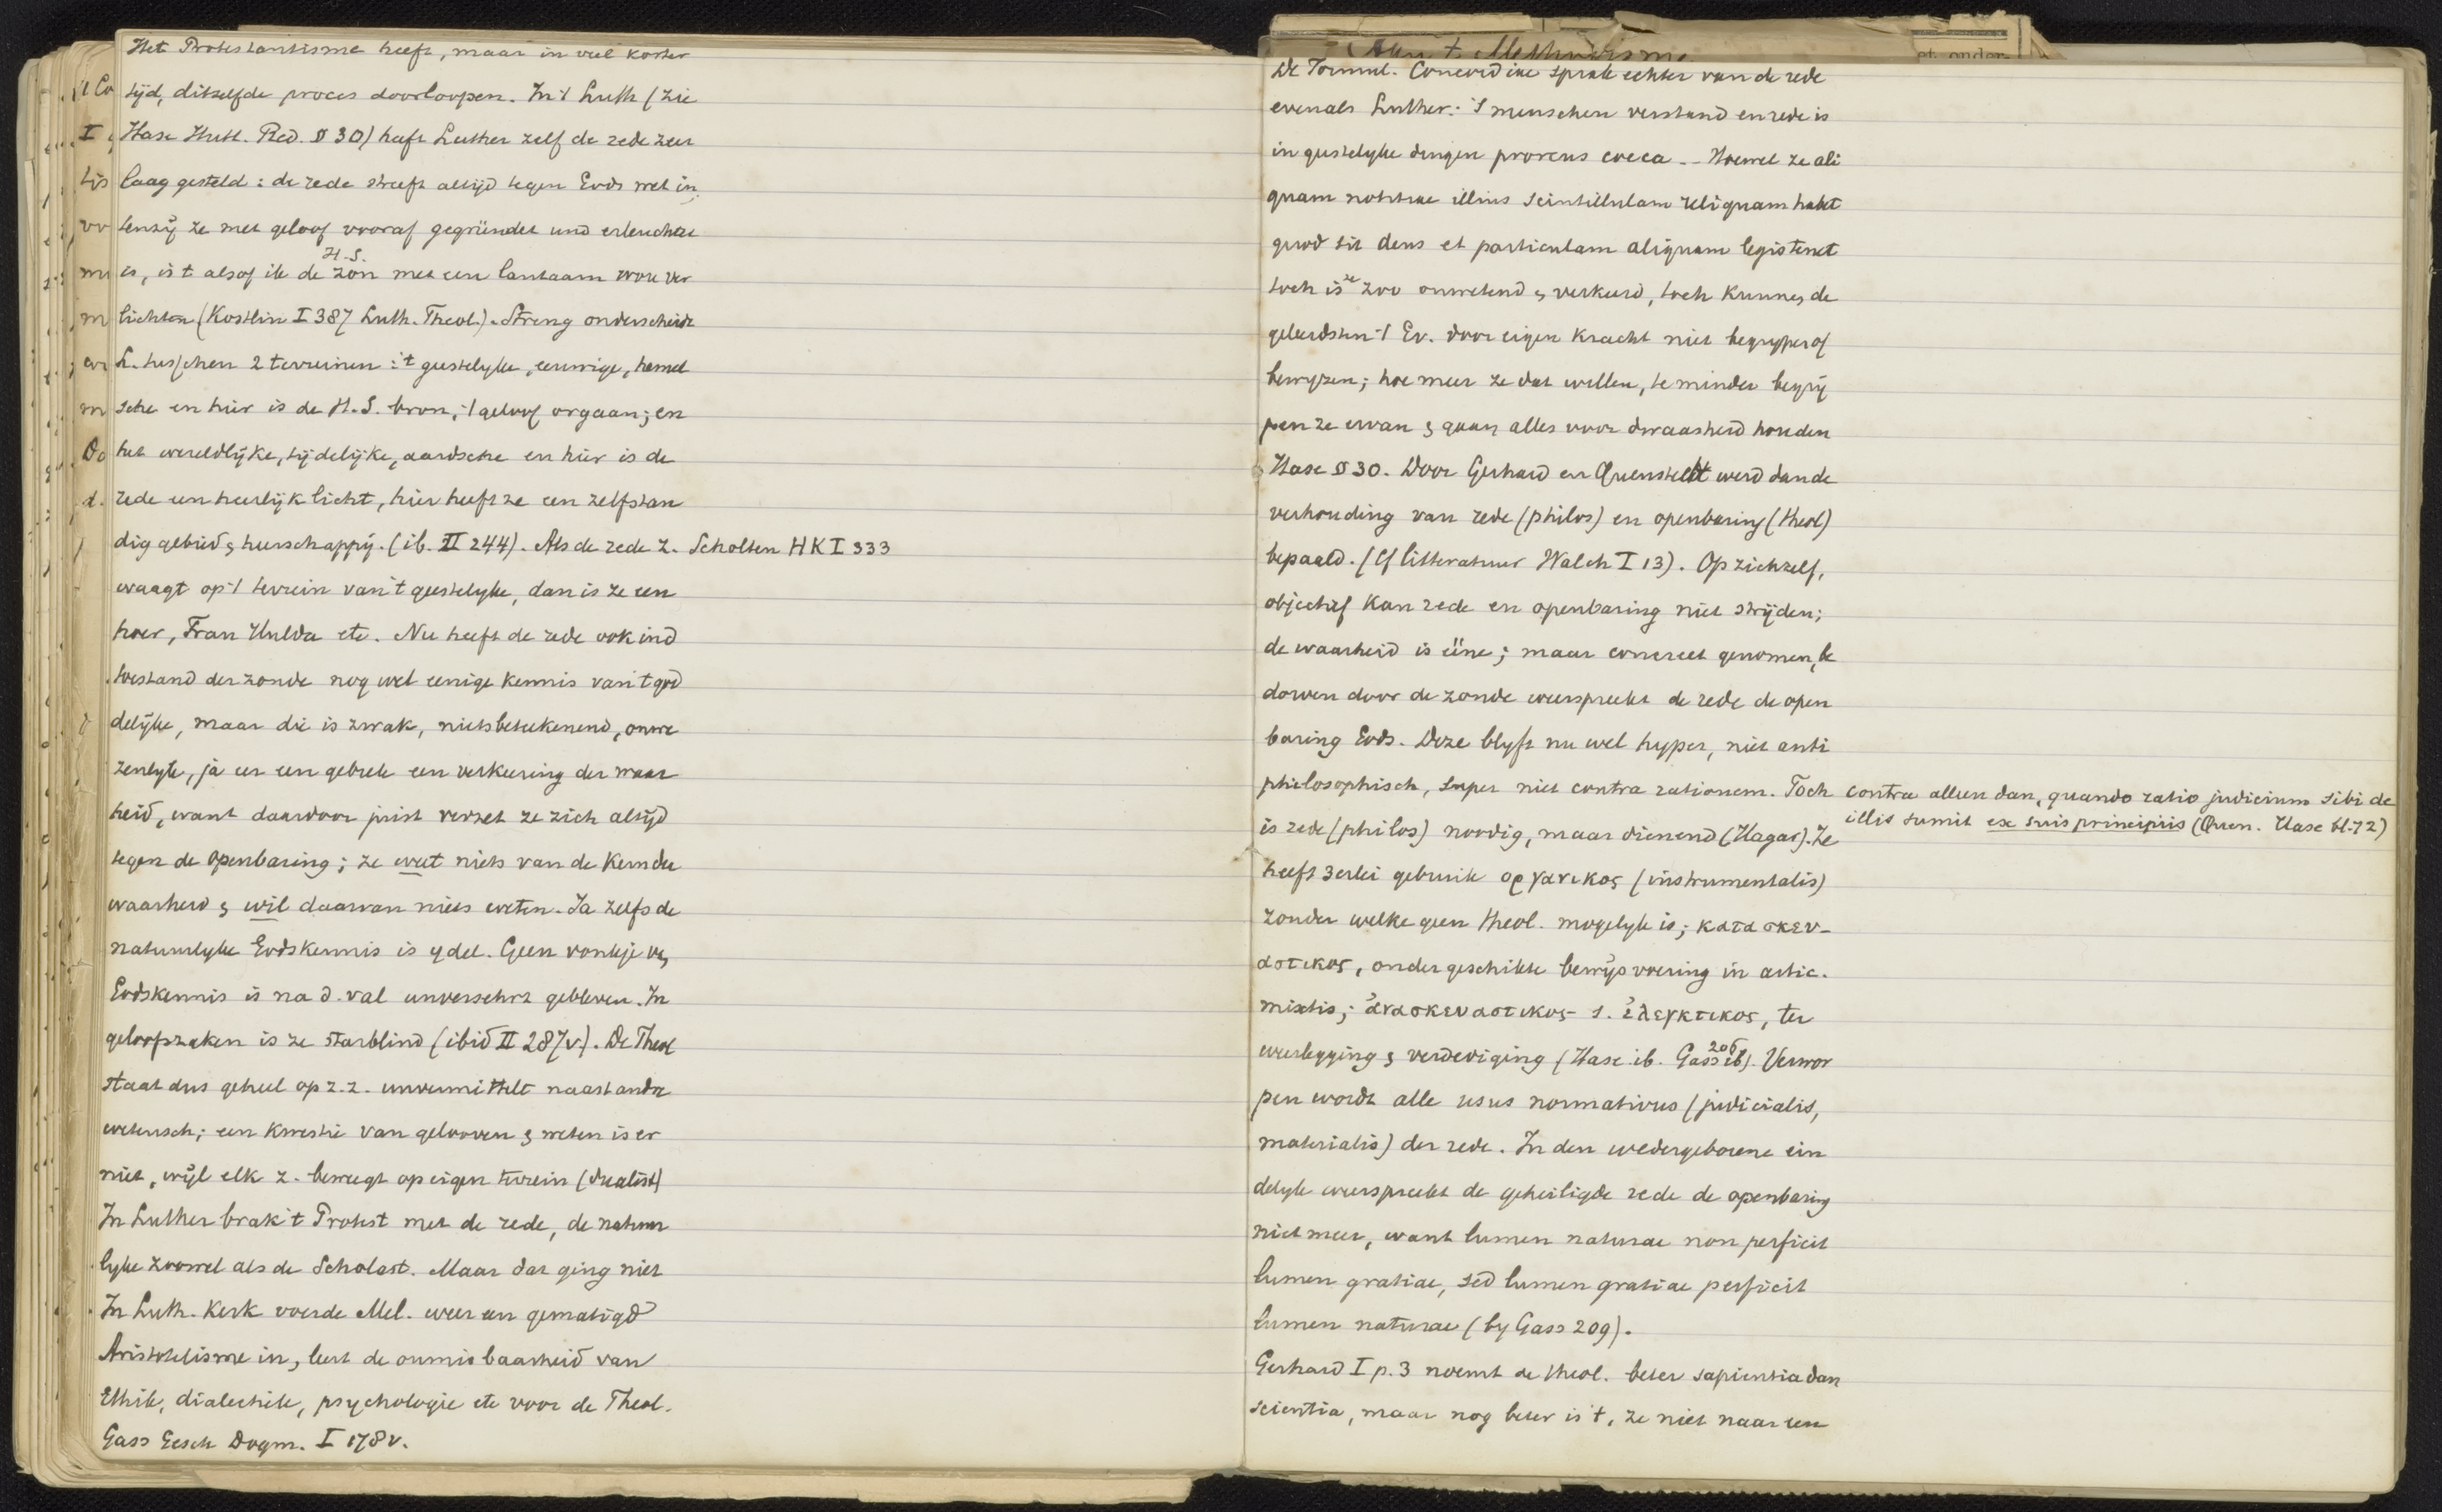 Het Protestantisme heeft, maar in veel korter
tijd, ditzelfde proces doorloopen. In 't Luth (zie
Hase Hutt. Red. § 30) heeft Luther zelf de rede zeer
laag gesteld: de rede streeft altijd tegen Gods wet in,
tenzij ze met geloof vooraf gegründet und erleuchtet
H. S.
is, is 't alsof ik de zon met een lantaarn wou ver
lichten (Kostlin I 387 Luth. Theol.). Streng onderscheidt
L. tusschen 2 terreinen: 't geestelyke, eeuwige, hemel
sche en hier is de H. S. bron, 't geloof orgaan; en
het wereldlijke, tijdelijke, aardsche en hier is de
rede een heerlijk licht, hier heeft ze een zelfstan
dig gebied & heerschappij. (ib. II 244). Als de rede z. Scholten HK I 333
waagt op 't terrein van 't geestelyke, dan is ze een
hoer, Frau Hulda etc. Nu heeft de rede ook in d
toestand der zonde nog wel eenige kennis van 't god
delijke, maar die is zwak, nietsbeteekenend, onwe
zenlyk, ja er een gebrek een verkeering der waar
heid, want daardoor juist verzet ze zich altijd
tegen de openbaring; ze weet niets van de kern der
waarheid & wil daarvan niets weten. Ja zelfs de
natuurlyke Godskennis is ydel. Geen vonkje v.
Godskennis is na d. val unversehrt gebleven. In
geloofszaken is ze starblind (ibid II 287 v.). De Theol
staat dus geheel op z. z. unvermittelt naast andre
wetensch; een kwestie van gelooven & weten is er
niet, wijl elk z. beweegt op eigen terrein (dualist)
In Luther brak 't Protest met de rede, de natuur
lyke zoowel als de Scholast. Maar dat ging niet
In Luth. Kerk voerde Mel. weer een gematigd
Aristotelisme in, leert de onmisbaarheid van
Ethik, dialectiek, psychologie etc voor de Theol.
Gass Gesch Dogm. I 178 v.
De Formul. Concordiae sprak echter van de rede
evenals Luther: 's menschen verstand en rede is
in geestelyke dingen prorsus coeca -- Hoewel ze ali
quam notitiae illius scintillulam reliquam habet
quod sit deus et particulam aliquam legis tenet
toch is ze zoo onwetend & verkeerd, toch kunnen de
geleerdsten 't Ev. door eigen kracht niet begrypen of
bewyzen; hoe meer ze dat willen, te minder begrij
pen ze ervan & gaan alles voor dwaasheid houden
Hase § 30. Door Gerhard en Quenstedt werd dan de
verhouding van rede (philos) en openbaring (theol)
bepaald. (Cf litteratuur Walch I 13). Op zichzelf,
objectief kan rede en openbaring niet strijden;
de waarheid is ééne; maar concreet genomen, be
dorven door de zonde weerspreekt de rede de open
baring Gods. Deze blyft nu wel hyper, niet anti
philosophisch, super niet contra rationem. Toch
contra alleen dan, quando ratio judicium sibi de
illis sumit ex suis principiis (Quen. Hase bl. 72)
is rede (philos) noodig, maar dienend (Hagar). Ze
heeft 3erlei gebruik οργανικος (instrumentalis)
zonder welke geen theol. mogelyk is; κατασκευ-
αστικος, ondergeschikte bewijsvoering in artic.
mixtis; ἀνασκευαστικος s. ἐλεγκτικος, ter
weerlegging & verdediging (Hase ib. Gass 206 ib). Verwor
pen wordt alle usus normativus (judicialis,
materialis) der rede. In den wedergeborene ein
delyk weerspreekt de geheiligde rede de openbaring
niet meer, want lumen naturae non perficit
lumen gratiae, sed lumen gratiae perficit
lumen naturae (by Gass 209).
Gerhard I p. 3 noemt de theol. beter sapientia dan
scientia, maar nog beter is 't, ze niet naar een